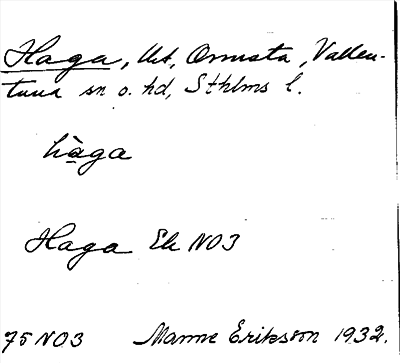 Haga, Ut, Ormsta, Vallen-
tuna sn o. hd, Sthlms l.
hàga
Haga Ek NO3
75 NO3 Manne Eriksson 1932.